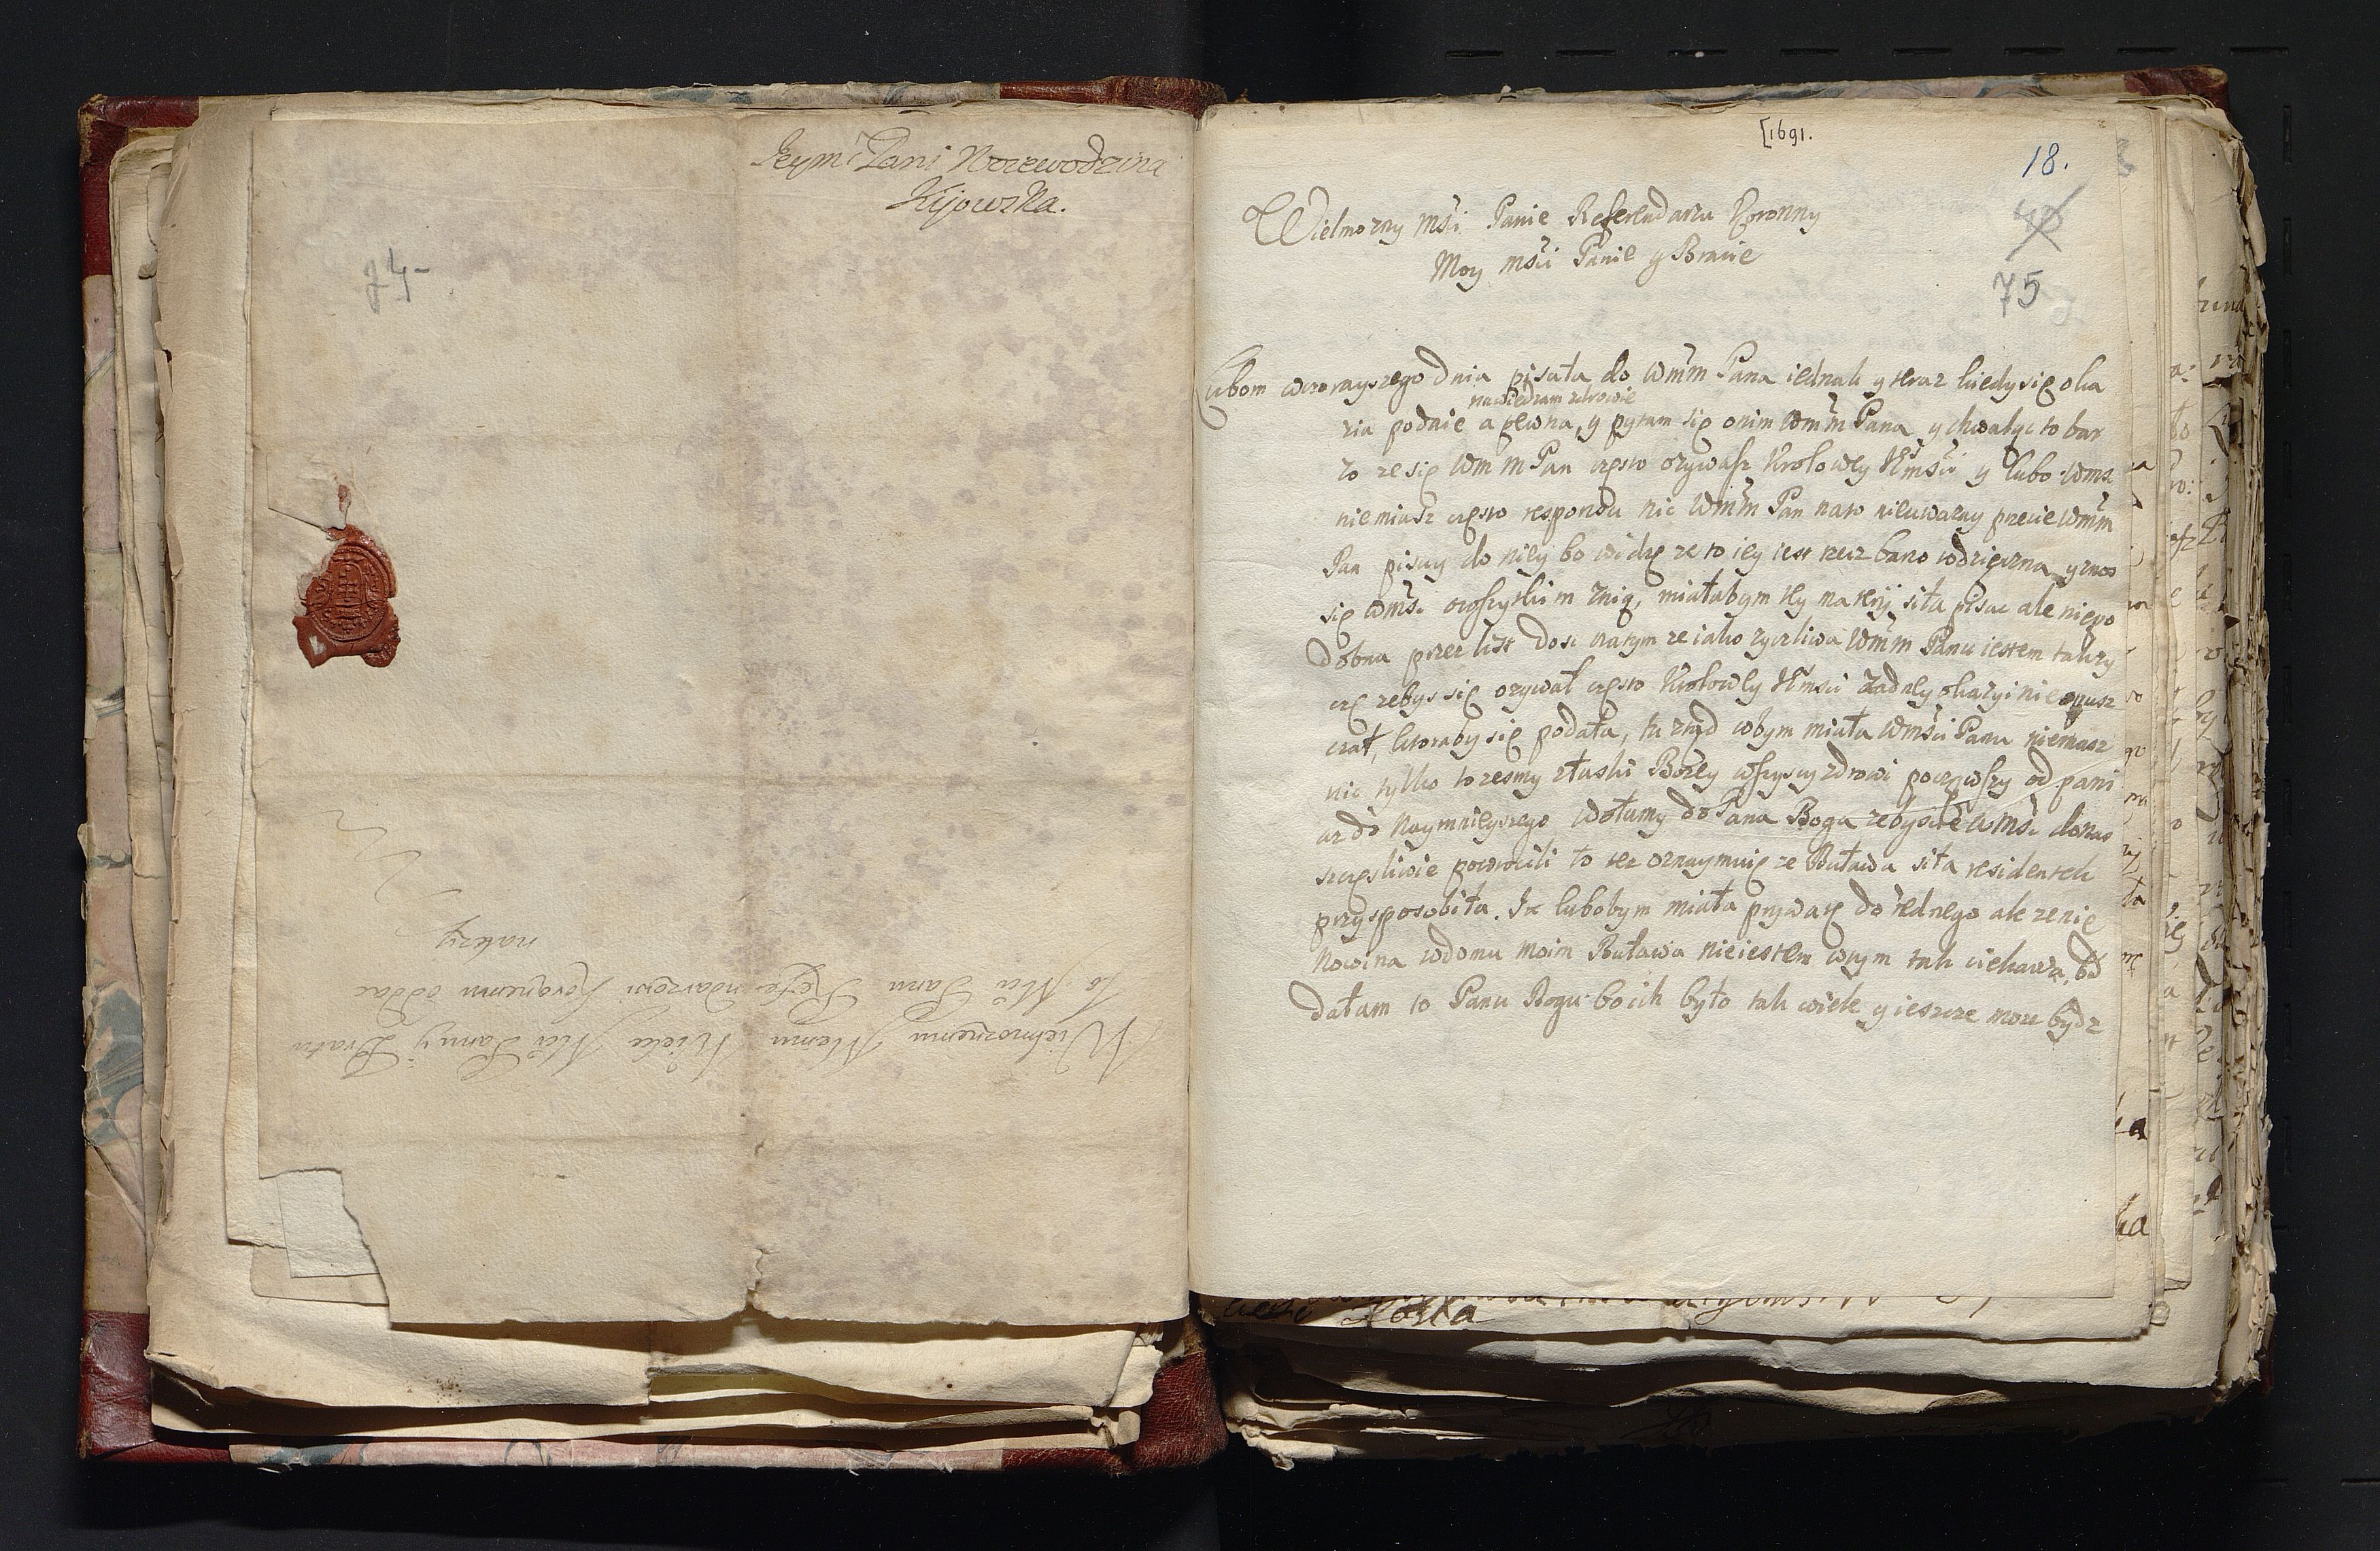 Jeym Pani Woiewodzina
Kijowska.
74
Wielmożnemu Memu Wiele Mći Panu y Bratu
Jo Mći Panu Referendarzowi Koronnemu oddac
należy
[1691.
18.
75
Wielmozny Msci Panie Referendarzu Koronny
Moy msci Panie y Bracie
Lubom wczorayszego dnia pisała do Wmm Pana iednak y teraz kiedy się oka
nawiedzam zdrowie
zia podaie a pewna, y pytam się onim Wmm Pana y chwalyc to bar
zo ze się Wm m Pan często ozywasz Krolowey JMsci y lubo Wms.
niemiasz często responsu nic Wmm Pan nato nieuwazay przecie Wmm
Pan pisuy do niey bo widzę ze to iey iest rzecz barzo wdzięczna y znos
się Wmsc. owszystkim znią, miałabym tey materij siła pisac ale niepo
dobna przez list dosc natym ze iako zyczliwa Wmm Panu iestem tak zy
czę zebys się ozywał często Krolowey JMsci zadney okazyi nieopusz
czał, ktoraby się podała, tu ztąd cobym miała Wmsci Panu niemasz
nic tylko to zesmy z łaski Bozey wszyscy zdrowi począwszy od pani
az do naymnieyszego wołamy do Pana Boga zebyscie Wmsc. donas
szczęsliwie powrocili to tez oznaymuię ze Buława siła residentek
przysposobiła. Ia lubobym miała prywatę do iednego ale zenie
Nowina wdomu moim Buława nieiestem wczym tak ciekawa, od
dałam to Panu Bogu bo ich było tak wiele y ieszcze moze bydz